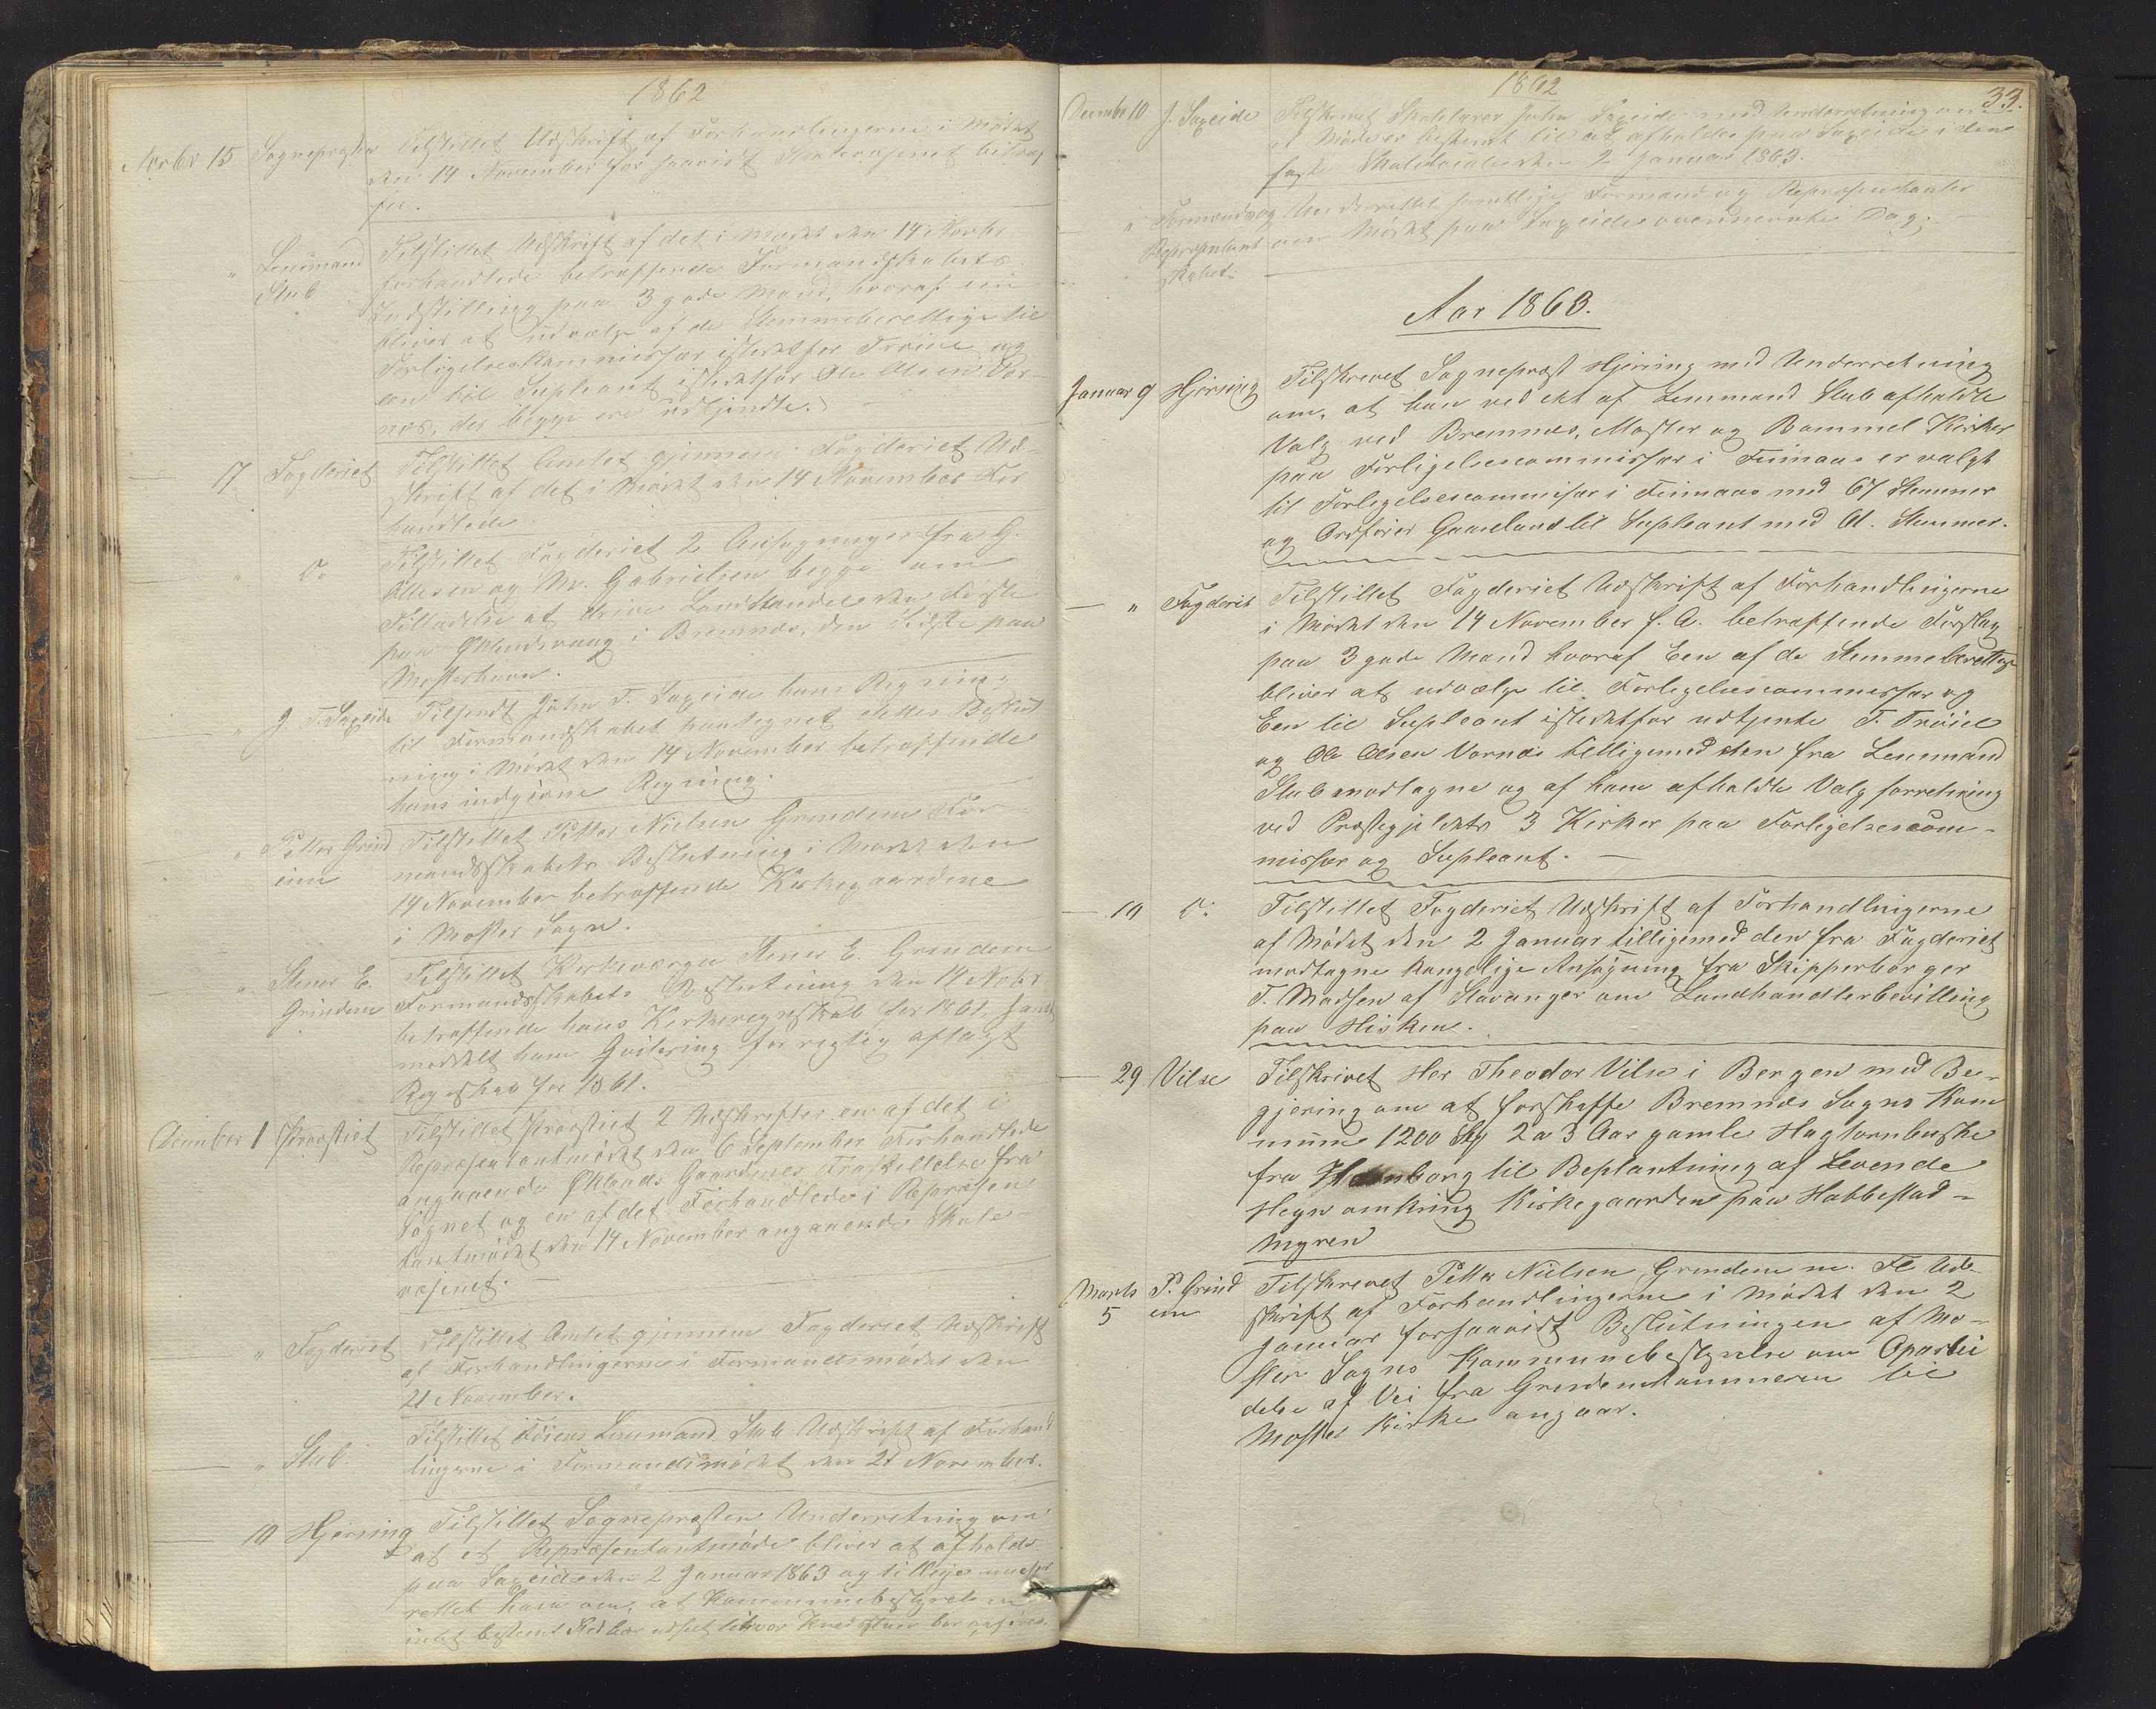 1862
Novbr 15. Sognepræsten Tilstillet Udskrift af Forhandlingerne i Mødet
den 14 November for saavidt Skolevæsenet betræf
fer.
" Lensmand Stub Tilstillet Udskrift af det i Mødet den 14 Novbr
forhandlede betræffende Formandskabets
Indstilling paa 3 gode Mænd, hvoraf een
bliver at udvælge af de Stemmeberettige til
Forligelseskommissær istedetfor Trøie og
een til Supleant istedetfor Ole Olsen Vor-
næs, der begge ere udtjendte.
17 Fogderiet Tilstillet Amtet gjennem Fogderiet Ud-
skrift af det i Mødet den 14 November For
handlede.
" Do Tilstillet Fogderiet 2 Ansøgninger fra G.
Ellesen og M. Gabrielsen begge om
Tilladelse at drive Landhandel den Første
paa Øklandsvaag i Bremnes, den Sidste paa
Mosterhavn.
" J. T. Sageide Tilsendt John T. Sageide hans Regning
til Formandskabet paategnet dettes Beslut
ning i Mødet den 14 November betræffende
hans indgivne Regning.
" Petter Grind eim Tilstillet Petter Nielsen Grindem For
mandsskabets Beslutning i Mødet den
14 November betræffende Kirkegaardene
i Moster Sogn.
" Stener E. Grindem Tilstillet Kirkeværgen Stener E. Grindem
Formandsskabets Beslutning den 14 Novbr
betræffende hans Kirkeregnskab for 1861, samt
meddelt ham Qvitering for rigtig aflagt
Regnskab for 1861.
December 1 Provstiet Tilstillet Provstiet 2 Udskrifter en af det i
Repræsentantmødet den 6 September Forhandlede
angaaende Øklands Gaardenes Fraskillelse fra
Sognet og en af det Forhandlede i Repræsen
tantmødet den 14 November angaaende Skole-
væsenet.
" Fogderiet Tilstillet Amtet gjennem Fogderiet Udskrift
af Forhandlingerne i Formandsmødet den
21 November.
" Stub. Tilstillet Lensmand Stub Udskrift af Forhand
lingerne i Formandsmødet den 21 November.
10 Hjerning Tilstillet Sognepræsten Underretning om
at et Repræsentantmøde bliver at afholde
paa Sageide den 2 Januar 1863 og tillige under
rettet ham om, at Kommunebestyrelsen
intet bestemt Sted har udseet til hvor
1862
33.
December 10 J. Sageide Tilskrevet Skolelærer John Sageide med Underretning om
et Møde er bestemt til at afholdes paa Sageide i den
faste Skolelocale den 2 Januar 1863.
" Formænds og Repræsentant skabet Underrettet samtlige Formænd og Repræsentanter
om Mødet paa Sageide ovennævnte Dag.
Aar 1863.
Januar 9 Hjerning Tilskrevet Sognepræst Hjerning med Underretning
om, at han ved det af Lensmand Stub afholdte
Valg ved Bremnes, Moster og Bømmel Kirker
paa Forligelsescommissær i Finnaas er valgt
til Forligelsescommissær i Finnaas med 67 Stemmer
og Ordfører Gaaseland til Supleant med 61. Stemmer.
" Fogderiet Tilstillet Fogderiet Udskrift af Forhandlingerne
i Mødet den 14 November f. A. betræffende Forslag
paa 3 gode Mænd hvoraf Een af de Stemmeberettige
bliver at udvælge til Forligelsescommissær og
Een til Supleant istedetfor udtjente T. Trøie
og Ole Olsen Vornæs tilligemed den fra Lensmand
Stub modtagne og af ham afholdte Valgforretning
ved Præstegjeldets 3 Kirker paa Forligelsescom-
missær og Supleant.
10 Do Tilstillet Fogderiet Udskrift af Forhandlingerne
af Mødet den 2 Januar tilligemed den fra Fogderiet
modtagne Kongelige Ansøgning fra Skipperborger
T. Madsen af Stavanger om Landhandlerbevilling
paa Hisken.
29 Vilse Tilskrivet Her Theodor Vilse i Bergen med Be-
gjering om at forskaffe Bremnes Sogns Kom
mune 1200 Stk 2 a 3 Aar gamle Hagtornbuske
fra Hamborg til Beplantning af Levende
Hegn omkring Kirkegaarden paa Habbestad-
myren
Marts 5 P. Grind em Tilskrevet Petter Nielsen Grindem m. Fl. Ud-
skrift af Forhandlingerne i Mødet den 2
Januar forsaavidt Beslutningen af Mo-
ster Sogns Kommunebestyrelse om Oparbei
delse af Vei fra Grindemkammeren til
Moster Kirke angaar.